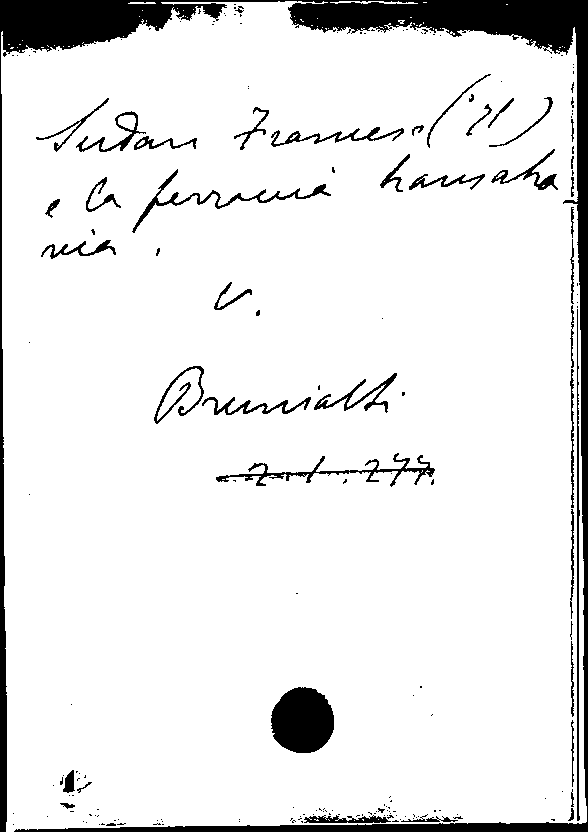 Sudan Frances. (Il)
e la ferrovia transaha
riana.
V.
Brunialti
Z. 1. 277.